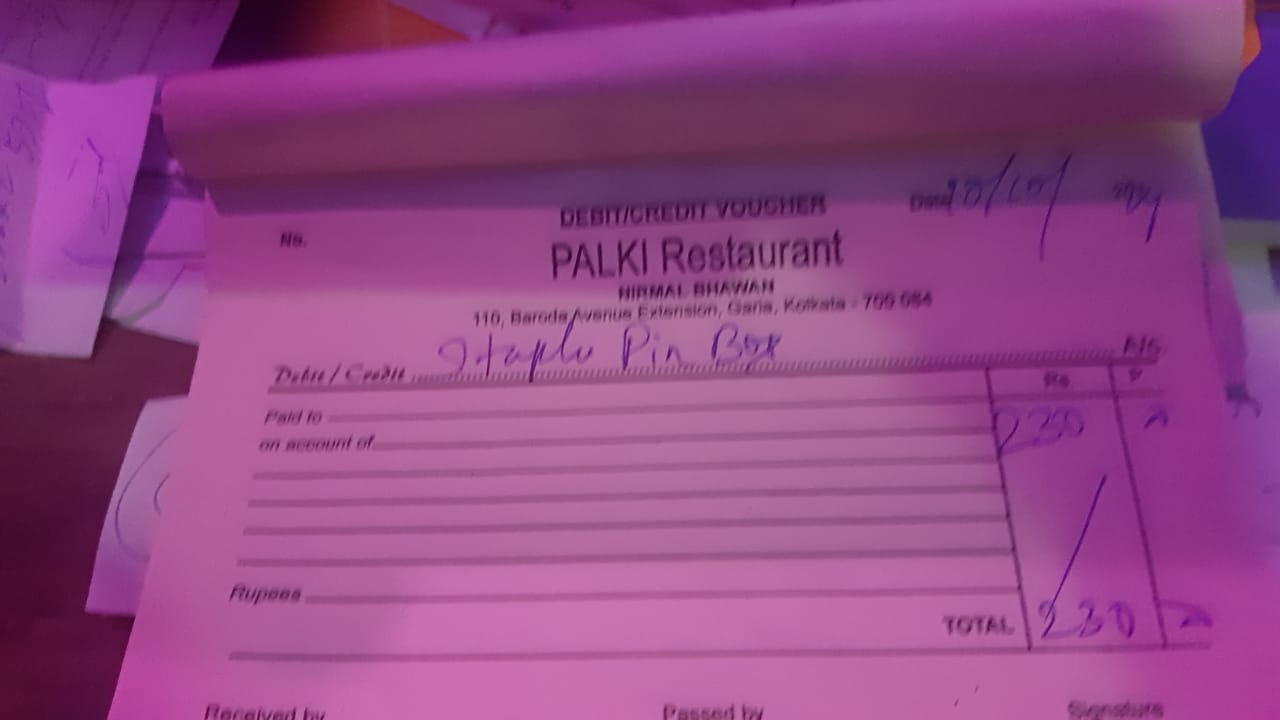 DEBIT/CREDIT VOUCHER
No.
Date 20/10/
PALKI Restaurant
NIRMAL BHAWAN
110, Baroda Avenue Extension, Garia, Kolkata - 700 084
Debit / Credit Staple Pin Box A/C
Rs. P.
Paid to 230
on account of
Rupees
TOTAL 230
Received by Passed by Signature